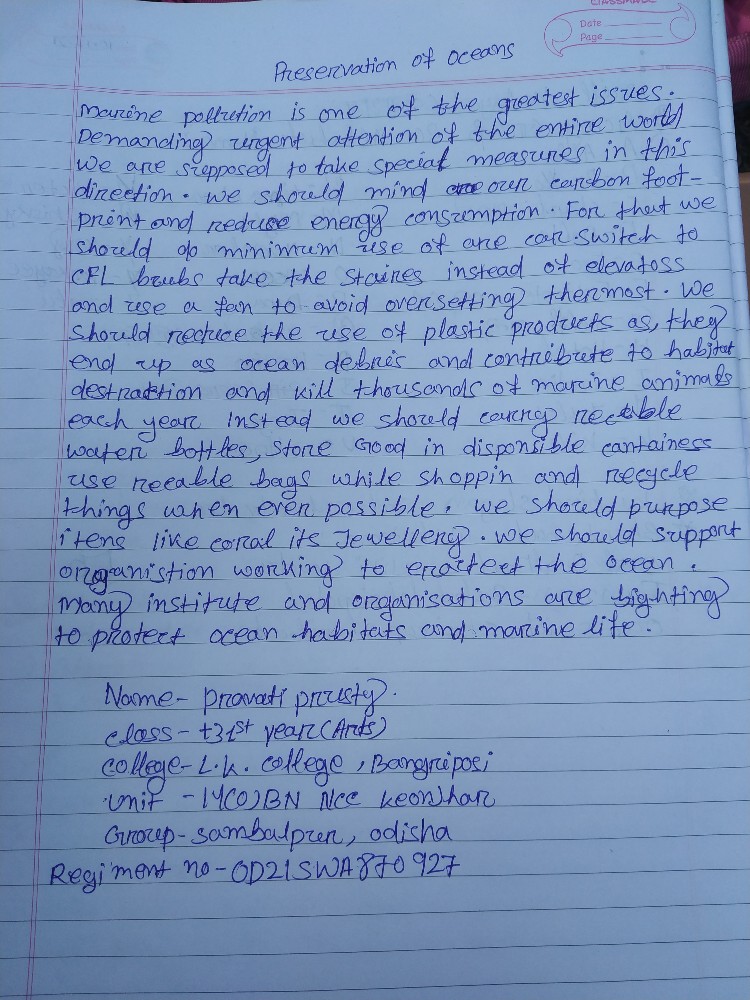 CLASSMATE
Date
Page
Preservation of Oceans
Marine pollution is one of the greatest issues.
Demanding urgent attention of the entire world
we are supposed to take special measures in this
direction. we should mind our carbon foot-
print and reduse energy consumption. For that we
should do minimum use of are can switch to
CFL brubs take the staires instead of elevatoss
and use a fan to avoid oversetting thermost. We
should reduce the use of plastic products as, they
end up as ocean debris and contribute to habitat
destraction and kill thousands of marine animals
each year Instead we should carry
water bottles, store Good in disponsible cantainess
use recable bags while shoppin and recycle
things when ever possible. we should purpose
itens like coral its Jewellery. we should support
organistion working to eractect the ocean.
Many institute and organisations are bighting
to protect ocean habitats and marine life.
Name- pravati prusty.
class- +3 1st year (Arts)
college- L.k. college, Bangriposi
unit - 14(O)BN Ncc keonjhar
Group- sambalpur, odisha
Regiment no- OD21SWA870927